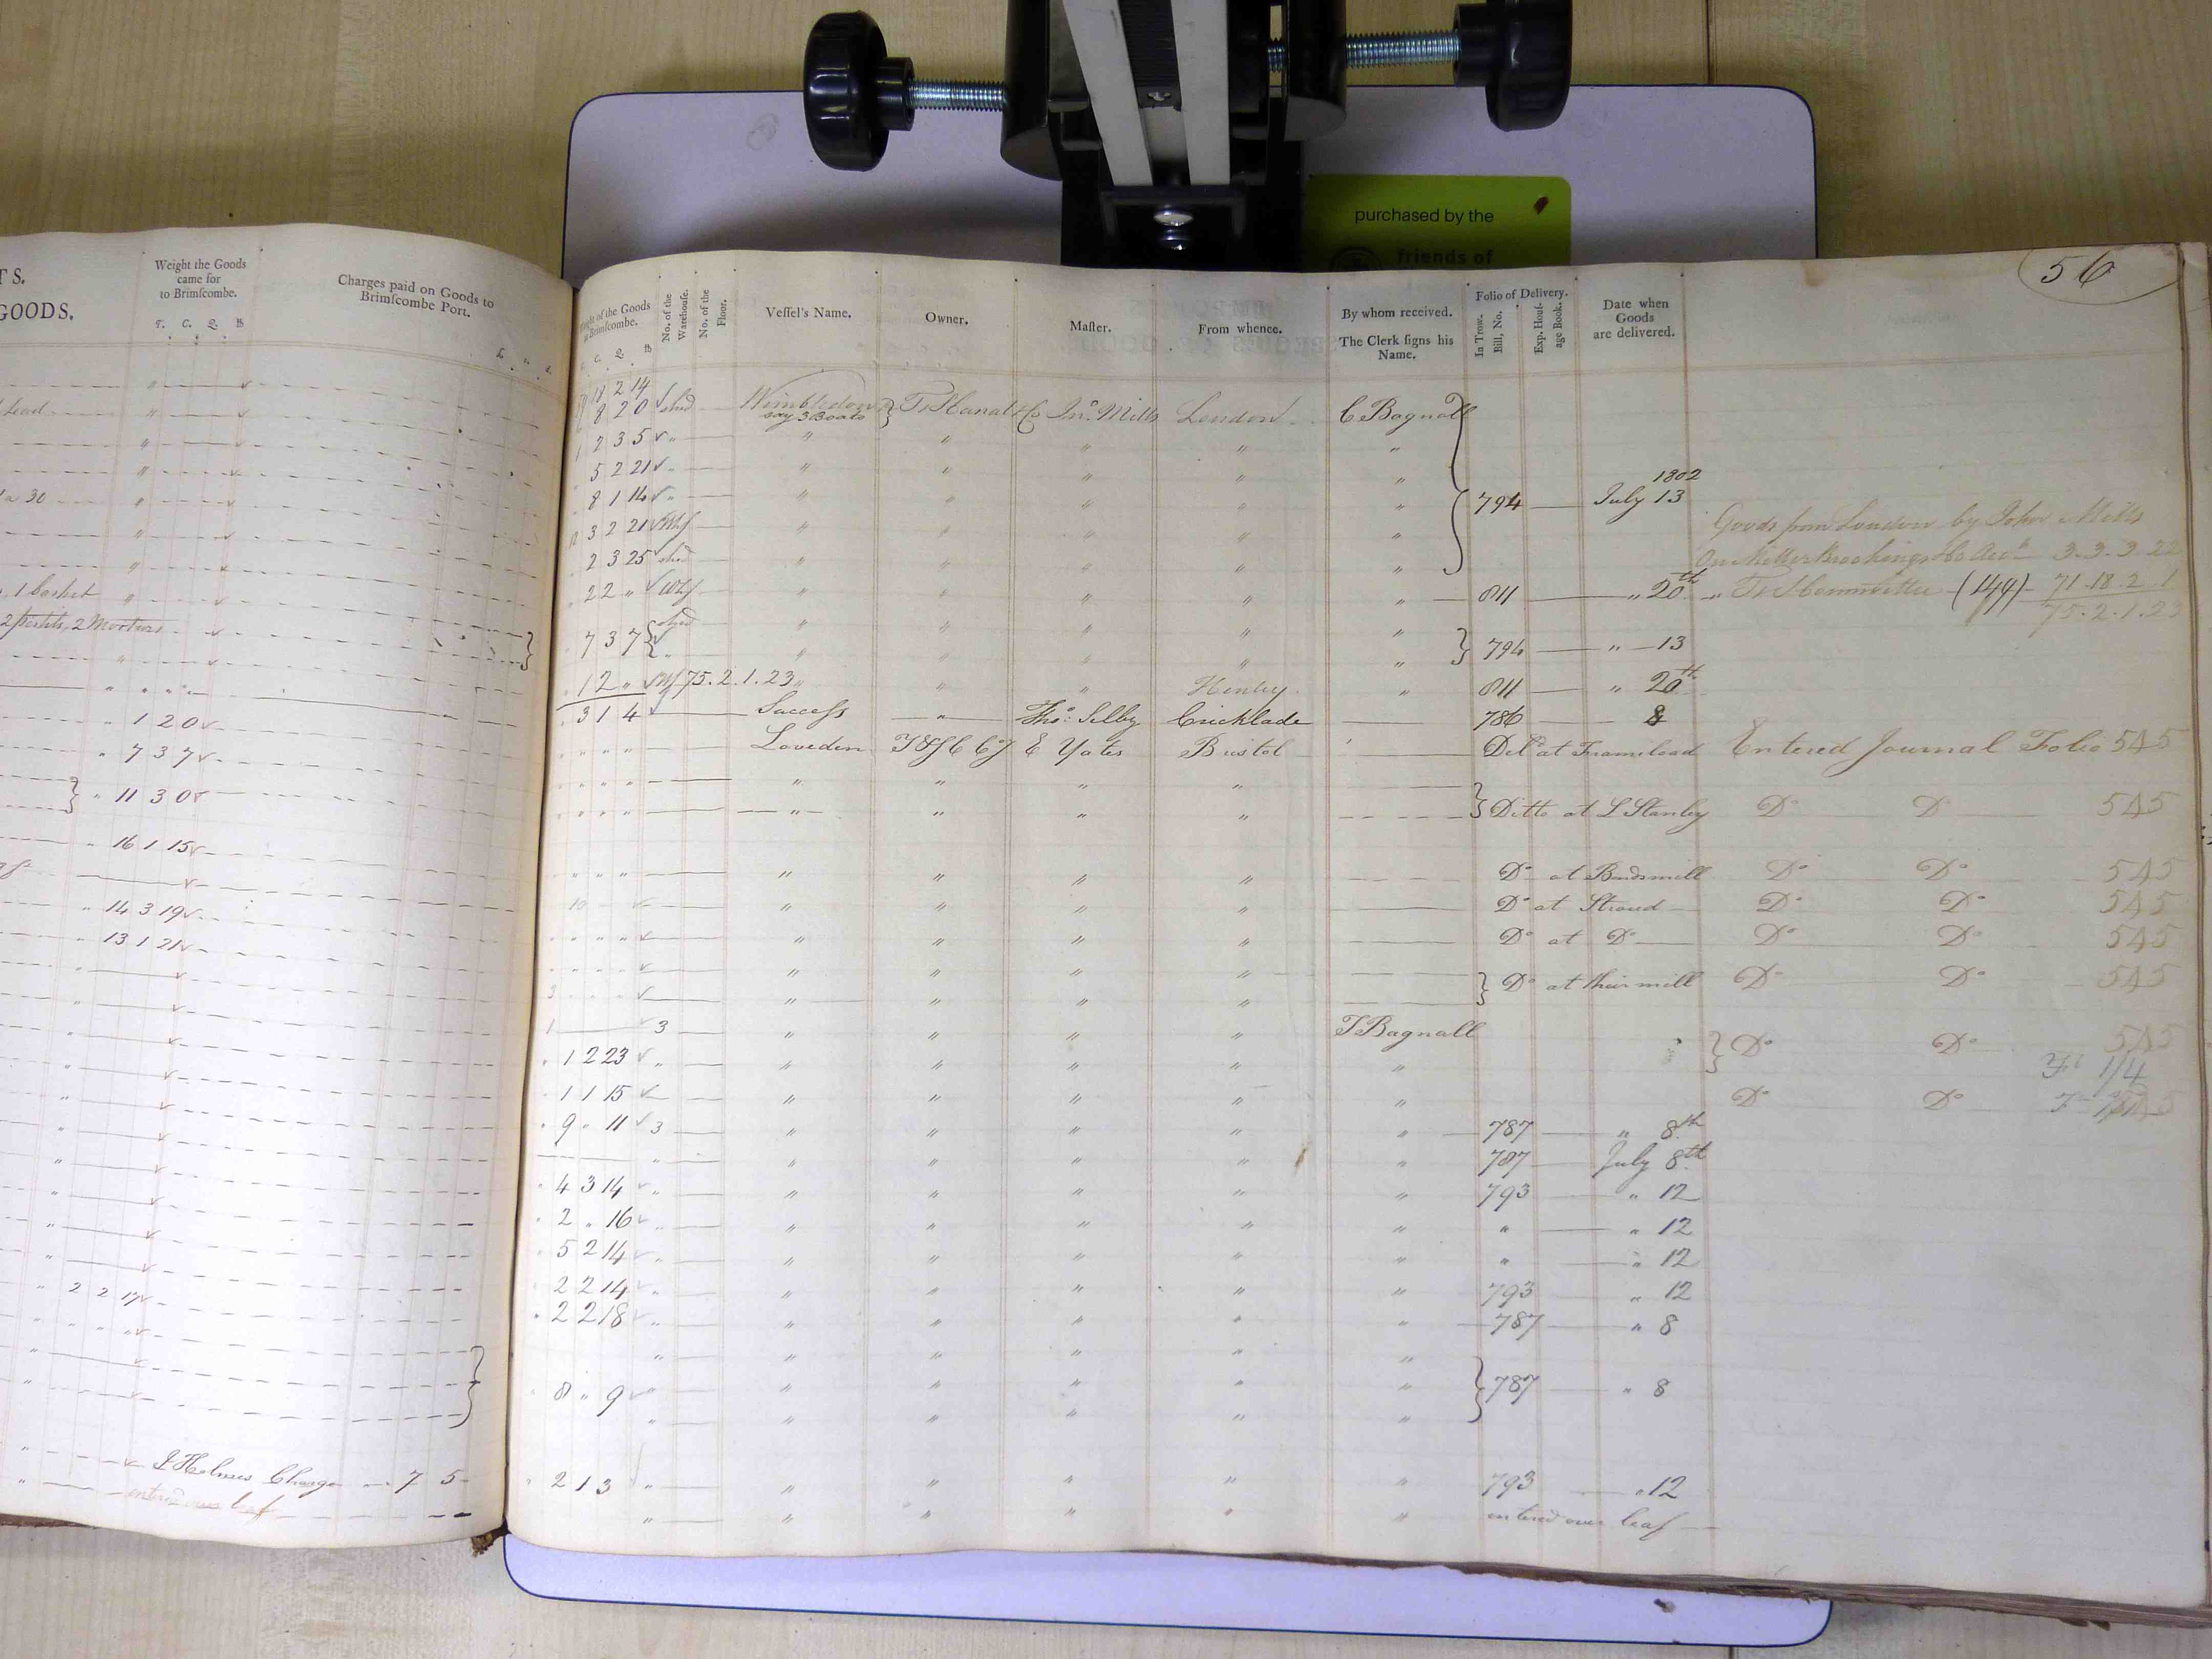 purchased by the
friends of
TS.
GOODS.
Weight the Goods
came for
to Brimſcombe.
T. C. Q. lb
Charges paid on Goods to
Brimſcombe Port.
Lead
a 30
1 basket
2 Mortars
1 2 0
7 3 7
11 3 0
16 1 15
14 3 19
13 1 21
2 2 17
J Holmes Charge 7 5
entered over leaf
56
of the Goods
Brimſcombe.
C. Q. lb
No. of the
Warehouſe.
No. of the
Floor.
Veſſel's Name.
Owner.
Maſter.
From whence.
By whom received.
The Clerk ſigns his
Name.
Folio of Delivery.
In Trow-
Bill, No.
Exp. Houſ-
age Book.
Date when
Goods
are delivered.
18 2 14
8 2 0 shed Wimbledon Ts Canal Co Jnº. Mills London C Bagnall
say 3 Boats
2 3 5 " " " " "
5 2 21 " " " " "
1802
8 1 14 " " " " " 794 July 13
3 2 21 Whf " " " " "
Goods from London by John Mills
2 3 25 shed " " " " "
On Miller Brockings Co Acct 3.3.3.22
22 " Whf " " " " " 811 " 20th " Ts Committee (144) 71.18.2.1
75.2.1.23
shed " " " " "
7 3 7 " " " " " 794 " 13
1 2 " Whf 75.2.1.23 " " " Henley " 811 " 20th
3 1 4 Success " Thos: Selby Cricklade 786 8
" " " Loveden E Yates Bristol Deld at Framiload Entered Journal Folio 545
" " " " " " "
" " " " " " " Ditto at L Stanley Do Do 545
" " " " " " " Do at Bindsmill Do Do 545
10 " " " " Do at Stroud Do Do 545
" " " " " " " Do at Do Do Do 545
" " " " " " "
3 " " " " Do at their mill Do Do 545
1 3 " " " " T Bagnall
Do Do 545
1 2 23 " " " " "
Fo 1/4
1 1 15 " " " " " Do Do
9 " 11 3 " " " " " 787 " 8th
" " " " " " 787 July 8th
4 3 14 " " " " " " 793 " 12
2 " 16 " " " " " " " " 12
5 2 14 " " " " " " " " 12
2 2 14 " " " " " " 793 " 12
2 2 18 " " " " " " 787 " 8
" " " " " "
8 " 9 " " " " " " 787 " 8
" " " " " "
2 1 3 " " " " " " 793 " 12
" " " " " " entered over leaf